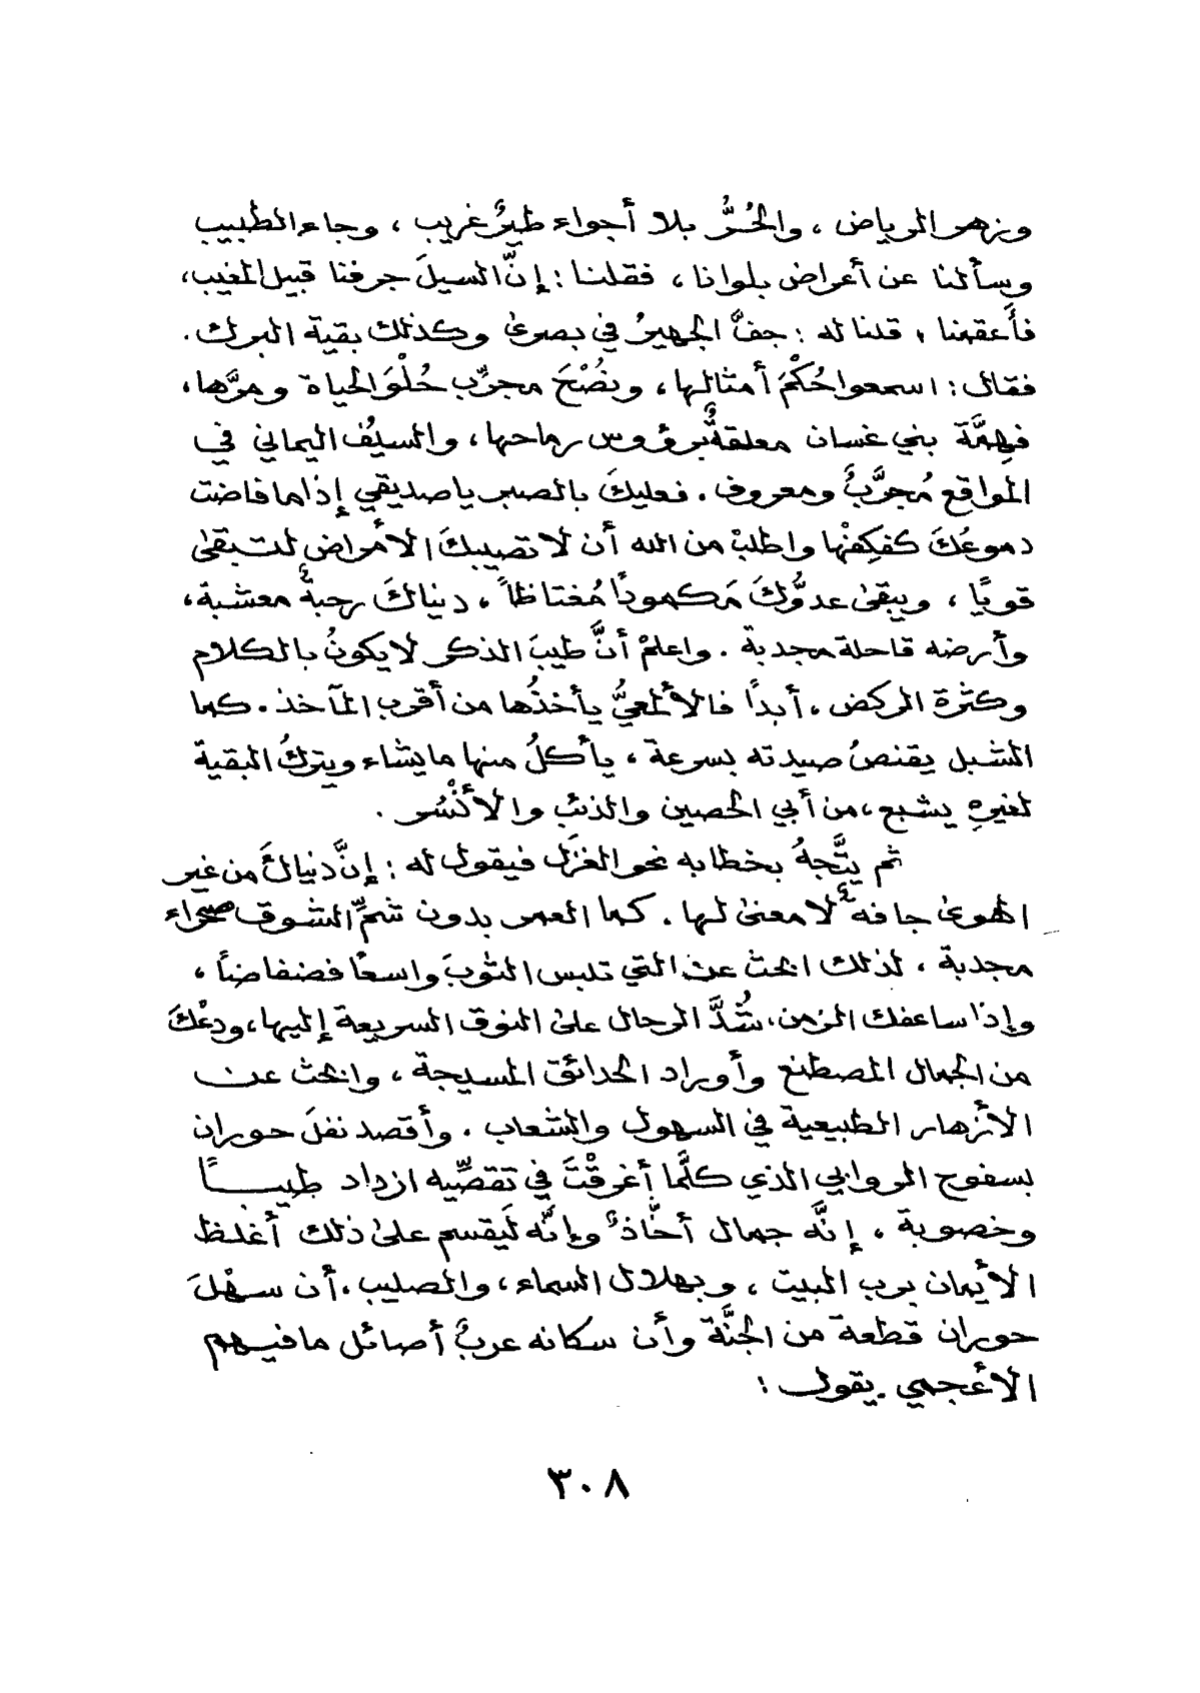 وزهر الرياض ، والحُرُّ بلا أجواء طيرٌ غريب ، وجاء الطبيب
وسألنا عن أعراض بلوانا ، فقلنا : إنَّ السيلَ جرفنا قبيل المغيب،
فأعقمنا ، قلنا له : جفَّ الجهيرُ في بصرى وكذلك بقية البرك .
فقال : اسمعوا حُكْمَ أمثالها ، ونُصْحَ مجرِّب حُلْوَ الحياة ومرَّها،
فهِمَّة بني غسان معلقةٌ برؤوس رماحها ، والسيُف اليماني في
المواقع مُجرَّبٌ ومعروف . فعليكَ بالصبر يا صديقي إذا ما فاضت
دموعُكَ كفكِفْها واطلبْ من الله أن لا تصيبكَ الأمراض لتبقى
قويًا ، ويبقى عدوُّكَ مَكموداً مُغتاظاً ، دنياكَ رحبةٌ معشبة،
وأرضه قاحلة مجدبة . واعلمْ أنَّ طيبَ الذكر لا يكونُ بالكلام
وكثرة الركض ، أبداً فالألمعيُّ يأخذُها من أقرب المآخذ . كما
الشبل يقنصُ صيدته بسرعة ، يأكلُ منها ما يشاء ويتركُ البقية
لغيرهِ يشبع ، من أبي الحصين والذئب والأنْسُر .
ثم يتَّجهُ بخطابه نحو الغزَل فيقول له : إنَّ دنياكَ من غير
الهوى جافةٌ لا معنى لها . كما العمر بدون شمِّ الشوق صحراء
مجدبة ، لذلك ابحث عن التي تلبس الثوبَ واسعاً فضفاضاً ،
وإذا ساعفك الزمن، شُدَّ الرحال على النوق السريعة إليها ،ودعْكَ
من الجمال المصطنع وأوراد الحدائق المسيجة ، وابحث عن
الأزهار الطبيعية في السهول والشعاب . وأقصد نفلَ حوران
بسفوح الروابي الذي كلَّما أغرقْتَ في تقصِّيه ازداد طيباً
وخصوبة ، إنَّه جمال أخَّاذٌ وإنَّه لَيقسم على ذلك أغلظ
الأيمان برب البيت ، وبهلال السماء ، والصليب ، أن سهْلَ
حوران قطعة من الجنَّة وأن سكانه عربٌ أصائل ما فيهم
الأعجمي . يقول :
٣٠٨